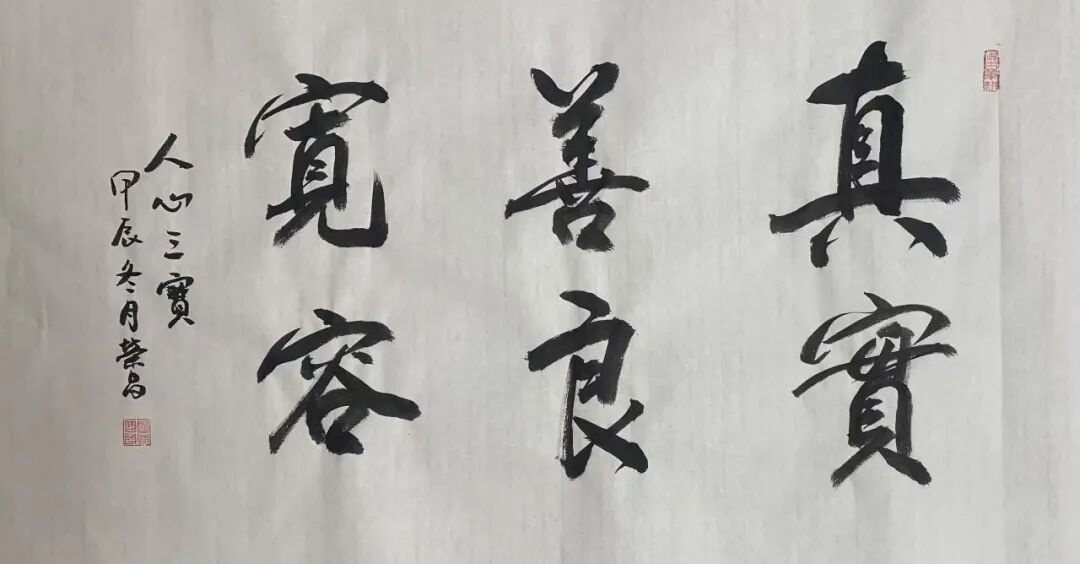 真實
善良
寬容
人心三寶
甲辰冬月榮昌